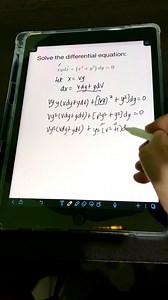 Solve the differential equation:
xydx + (x² + y²) dy = 0
let x = vy
dx = vdy + ydv
vy y (vdy + ydv) + [(vy)² + y²] dy = 0
vy² (vdy + ydv) + [v²y² + y²] dy = 0
vy² (vdy + ydv) + y² [v² + 1] d